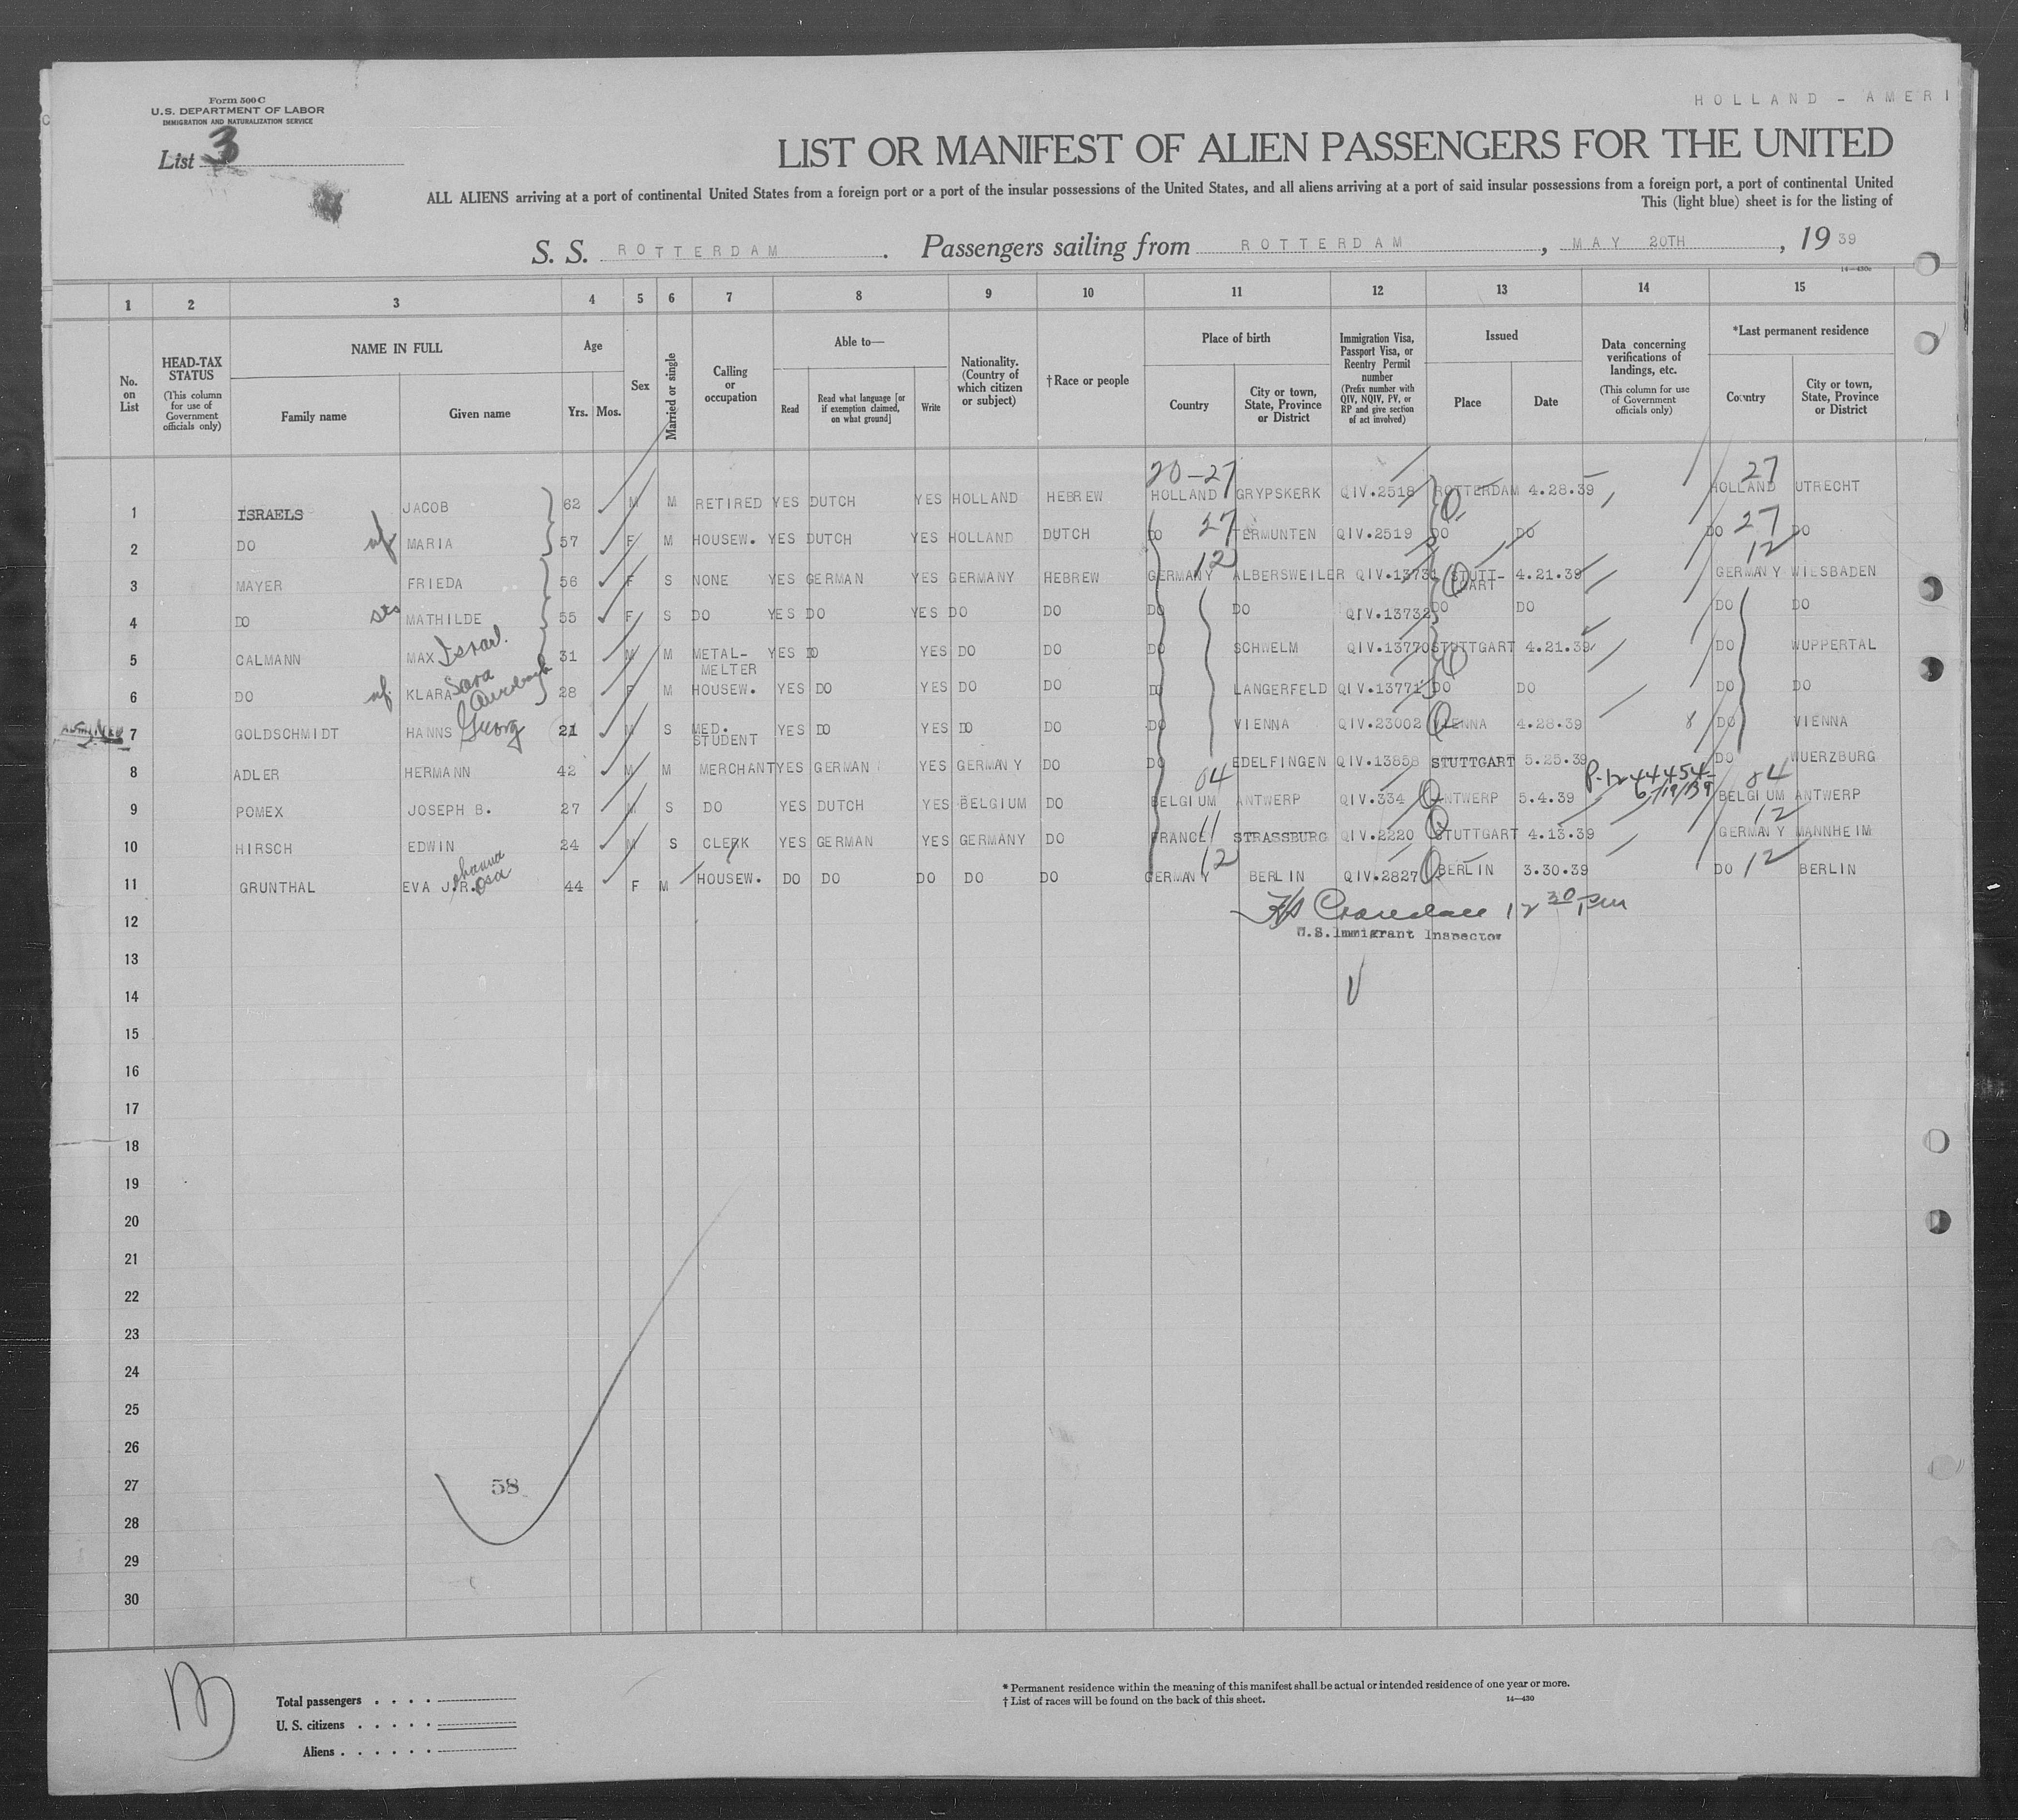 HOLLAND - AMERI
Form 500 C
U.S. DEPARTMENT OF LABOR
IMMIGRATION AND NATURALIZATION SERVICE
List 3
LIST OR MANIFEST OF ALIEN PASSENGERS FOR THE UNITED
ALL ALIENS arriving at a port of continental United States from a foreign port or a port of the insular possessions of the United States, and all aliens arriving at a port of said insular possessions from a foreign port, a port of continental United
This (light blue) sheet is for the listing of
S. S. ROTTERDAM. Passengers sailing from ROTTERDAM, MAY 20TH, 1939
14—430c
1 2 3 4 5 6 7 8 9 10 11 12 13 14 15
No. on List
HEAD-TAX STATUS (This column for use of Government officials only)
NAME IN FULL
Family name
Given name
Age
Yrs. Mos.
Sex
Married or single
Calling or occupation
Able to—
Read
Read what language [or if exemption claimed, on what ground]
Write
Nationality. (Country of which citizen or subject)
†Race or people
Place of birth
Country
City or town, State, Province or District
Immigration Visa, Passport Visa, or Reentry Permit number (Prefix number with QIV, NQIV, PV, or RP and give section of act involved)
Issued
Place
Date
Data concerning verifications of landings, etc. (This column for use of Government officials only)
*Last permanent residence
Country
City or town, State, Province or District
20-27 27
1 ISRAELS JACOB 62 M M RETIRED YES DUTCH YES HOLLAND HEBREW HOLLAND GRYPSKERK QIV.2518 ROTTERDAM 4.28.39 HOLLAND UTRECHT
27 27
2 DO wf MARIA 57 F M HOUSEW. YES DUTCH YES HOLLAND DUTCH DO TERMUNTEN QIV.2519 DO DO DO DO
12 12
3 MAYER FRIEDA 56 F S NONE YES GERMAN YES GERMANY HEBREW GERMANY ALBERSWEILER QIV.13731 STUTT-GART 4.21.39 GERMANY WIESBADEN
4 DO sis MATHILDE 55 F S DO YES DO YES DO DO DO DO QIV.13732 DO DO DO DO
5 CALMANN MAX Israel 31 M M METAL-MELTER YES DO YES DO DO DO SCHWELM QIV.13770 STUTTGART 4.21.39 DO WUPPERTAL
6 DO wf. KLARA Sara 28 F M HOUSEW. YES DO YES DO DO DO LANGERFELD QIV.13771 DO DO DO DO
7 GOLDSCHMIDT HANNS Georg 21 M S MED. STUDENT YES DO YES DO DO DO VIENNA QIV.23002 VIENNA 4.28.39 DO VIENNA
8 ADLER HERMANN 42 M M MERCHANT YES GERMAN YES GERMANY DO DO EDELFINGEN QIV.13858 STUTTGART 5.25.39 DO WUERZBURG
04 P-1244454 6/19/39 04
9 POMEX JOSEPH B. 27 M S DO YES DUTCH YES BELGIUM DO BELGIUM ANTWERP QIV.334 ANTWERP 5.4.39 BELGIUM ANTWERP
11 12
10 HIRSCH EDWIN 24 M S CLERK YES GERMAN YES GERMANY DO FRANCE STRASSBURG QIV.2220 STUTTGART 4.13.39 GERMANY MANNHEIM
12 12
11 GRUNTHAL EVA J.ohanna R.osa 44 F M HOUSEW. DO DO DO DO DO GERMANY BERLIN QIV.2827 BERLIN 3.30.39 DO BERLIN
12 12 30 pm
U.S. Immigrant Inspector
13
14
15
16
17
18
19
20
21
22
23
24
25
26
27 58
28
29
30
Total passengers
U. S. citizens
Aliens
* Permanent residence within the meaning of this manifest shall be actual or intended residence of one year or more.
† List of races will be found on the back of this sheet. 14—430